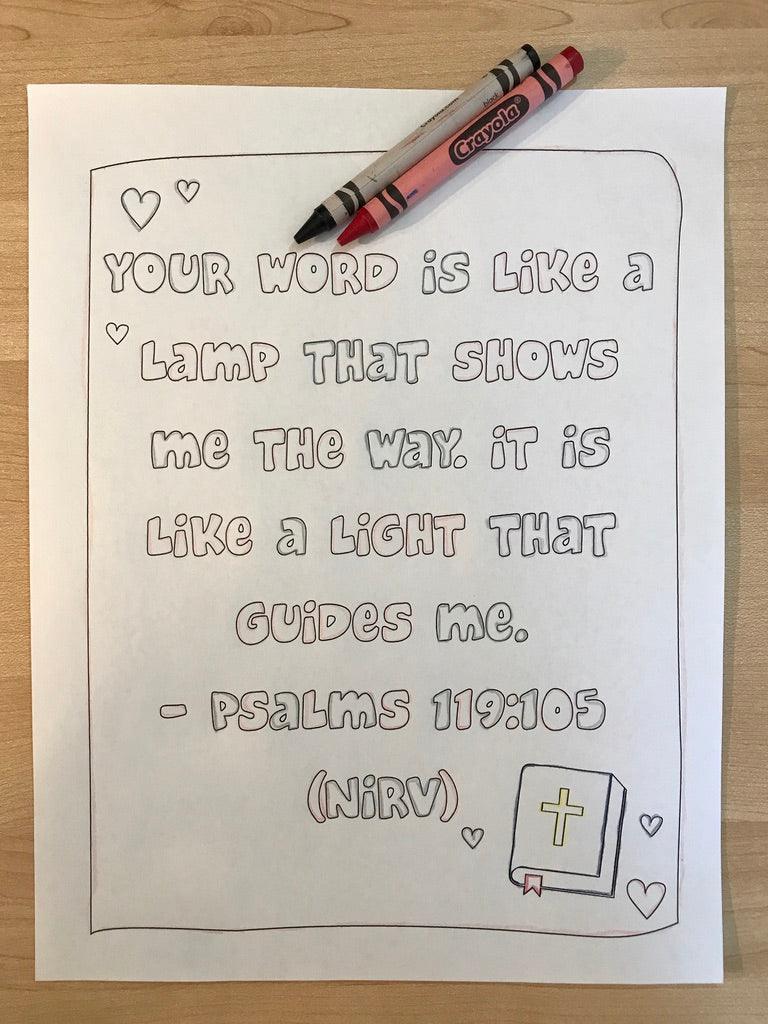 Crayola.com
black
Crayola®
YOUR WORD is Like a
Lamp THaT SHOWS
me THe Way. iT is
Like a LiGHT THaT
GUiDes me.
- Psalms 119:105
(NiRV)